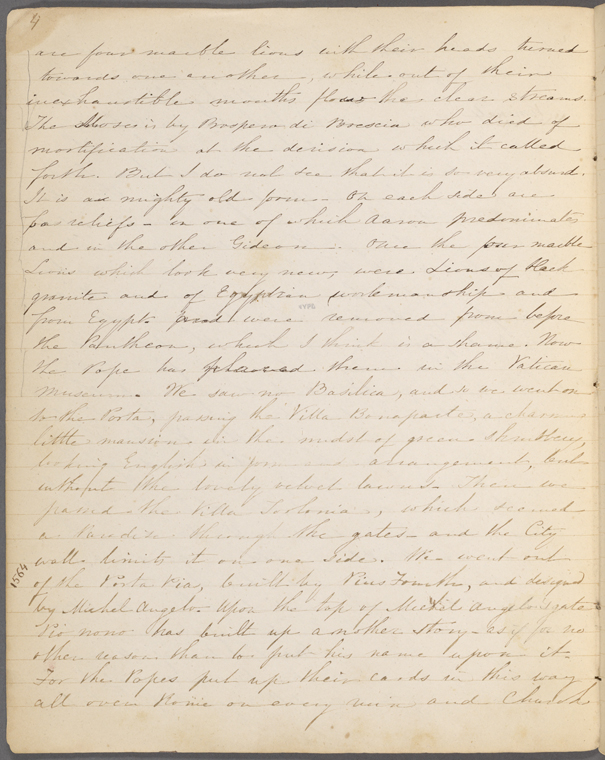 4
are four marble lions with their heads turned
towards one another, while out of their
inexhaustible mouths flow the clear streams.
The Moses is by Prospero di Brescia who died of
mortification at the derision which it called
forth. But I do not see that it is so very absurd.
It is a mighty old form. On each side are
bas reliefs - in one of which Aaron predominates
and in the other Gideon. Once the four marble
Lions which look very new, were Lions of black
granite and of Egyptian workmanship and
from Egypt and were removed from before
the Pantheon, which I think is a shame. Now
the Pope has placed them in the Vatican
Museum. We saw no Basilica, and so we went on
to the Porta, passing the Villa Bonaparte, a charming
little mansion in the midst of green shrubbery,
looking English in form and arrangement, but
without the lovely velvet lawns. Then we
passed the Villa Torlonia, which seemed
a Paradise through the gates - and the City
wall limits it on one side. We went out
1564
of the Porta Pia, built by Pius Fourth, and designed
by Michel Angelo. Upon the top of Michel Angelo's gate
Pio nono has built up another story - as if for no
other reason than to put his name upon it.
For the Popes put up their cards in this way
all over Rome on every ruin and Church